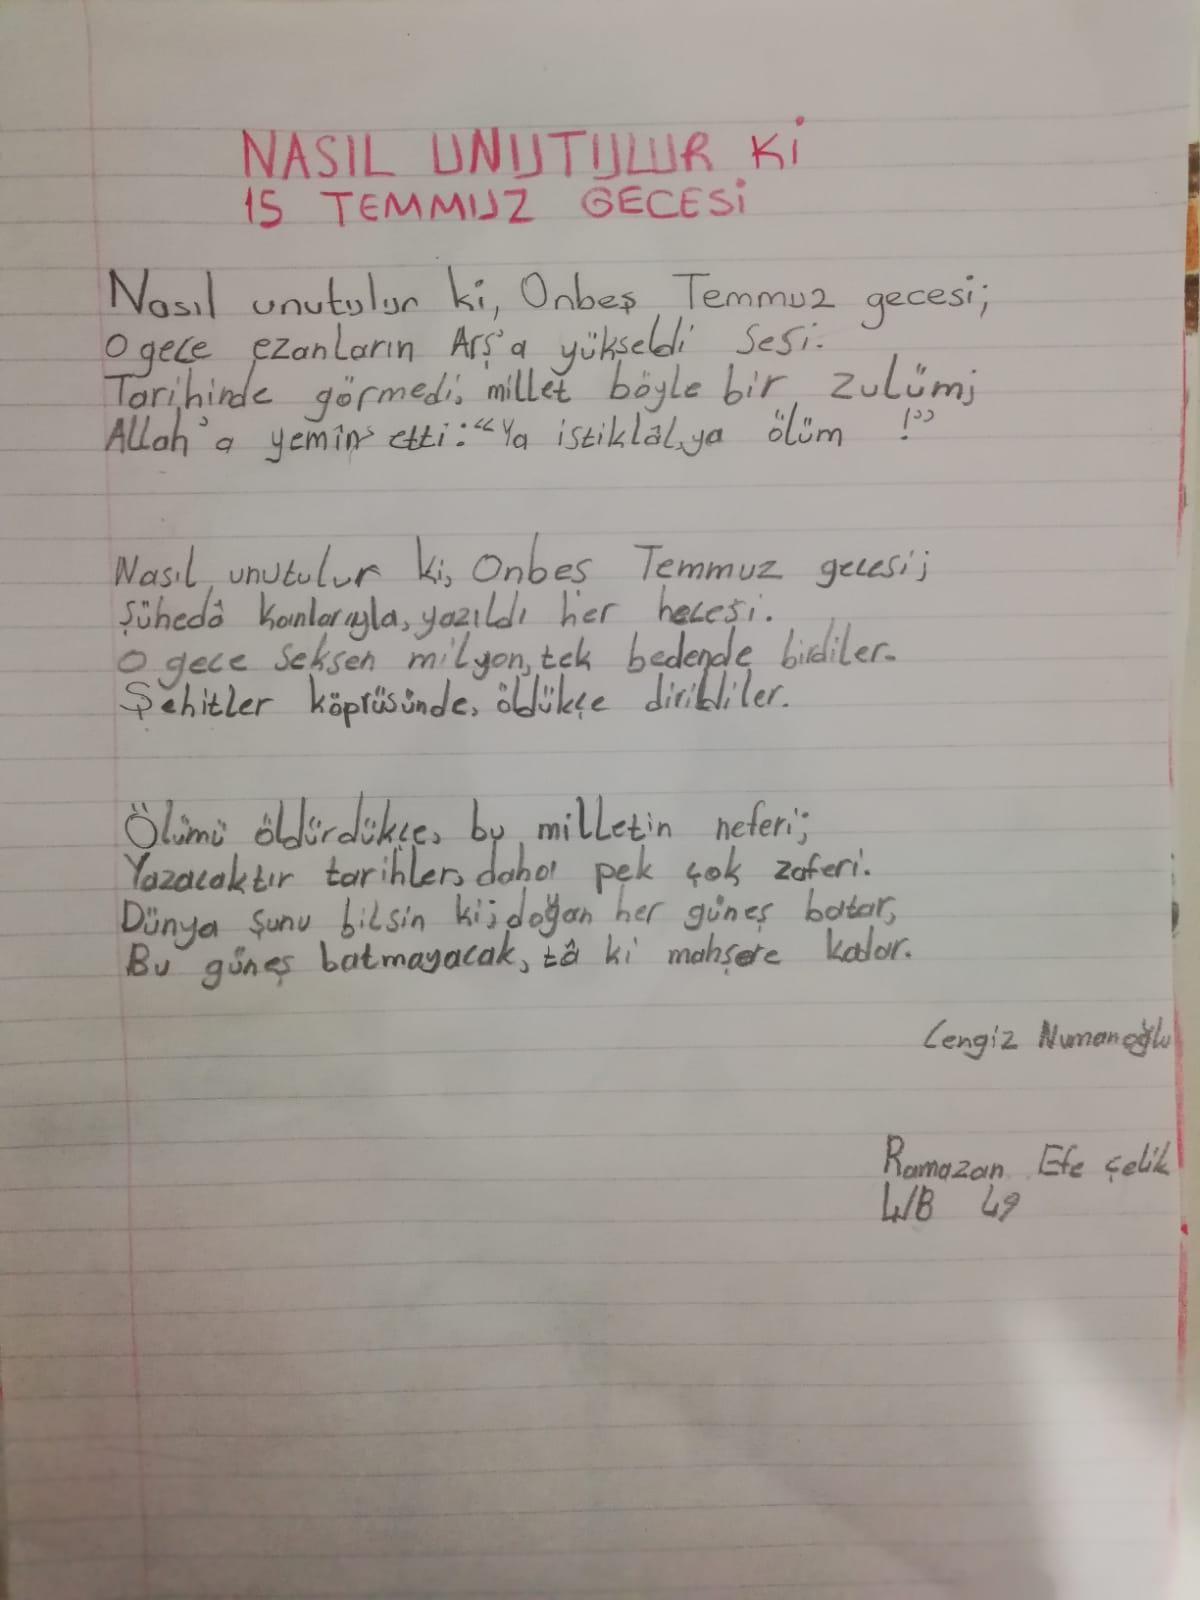 NASIL UNUTULUR Kİ
15 TEMMUZ GECESİ
Nasıl unutulur ki, Onbeş Temmuz gecesi;
O gece ezanların Arş'a yükseldi sesi.
Tarihinde görmedi, millet böyle bir zulüm;
Allah'a yemin etti: “Ya istiklâl, ya ölüm !”
Nasıl unutulur ki, Onbeş Temmuz gecesi;
Şühedâ kanlarıyla, yazıldı her hecesi.
O gece Seksen milyon, tek bedende birdiler.
Şehitler köprüsünde, öldükçe dirildiler.
Ölümü öldürdükçe, bu milletin neferi;
Yazacaktır tarihler, daha pek çok zaferi.
Dünya şunu bilsin ki; doğan her güneş batar,
Bu güneş batmayacak, tâ ki mahşere kadar.
Cengiz Numanoğlu
Ramazan Efe Çelik
4/B 49